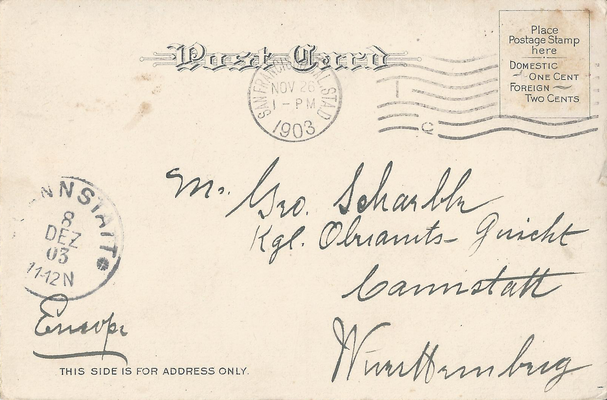 Post Card
Place
Postage Stamp
here
DOMESTIC
ONE CENT
FOREIGN
TWO CENTS
SAN FRANCISCO STA.D
NOV 26
1-PM
1903
C
NNSTATT
8
DEZ
03
11-12N
Mr. Geo.
Kgl. Oberamts-Gericht
Cannstatt
Wuerttemberg
Europe
THIS SIDE IS FOR ADDRESS ONLY.